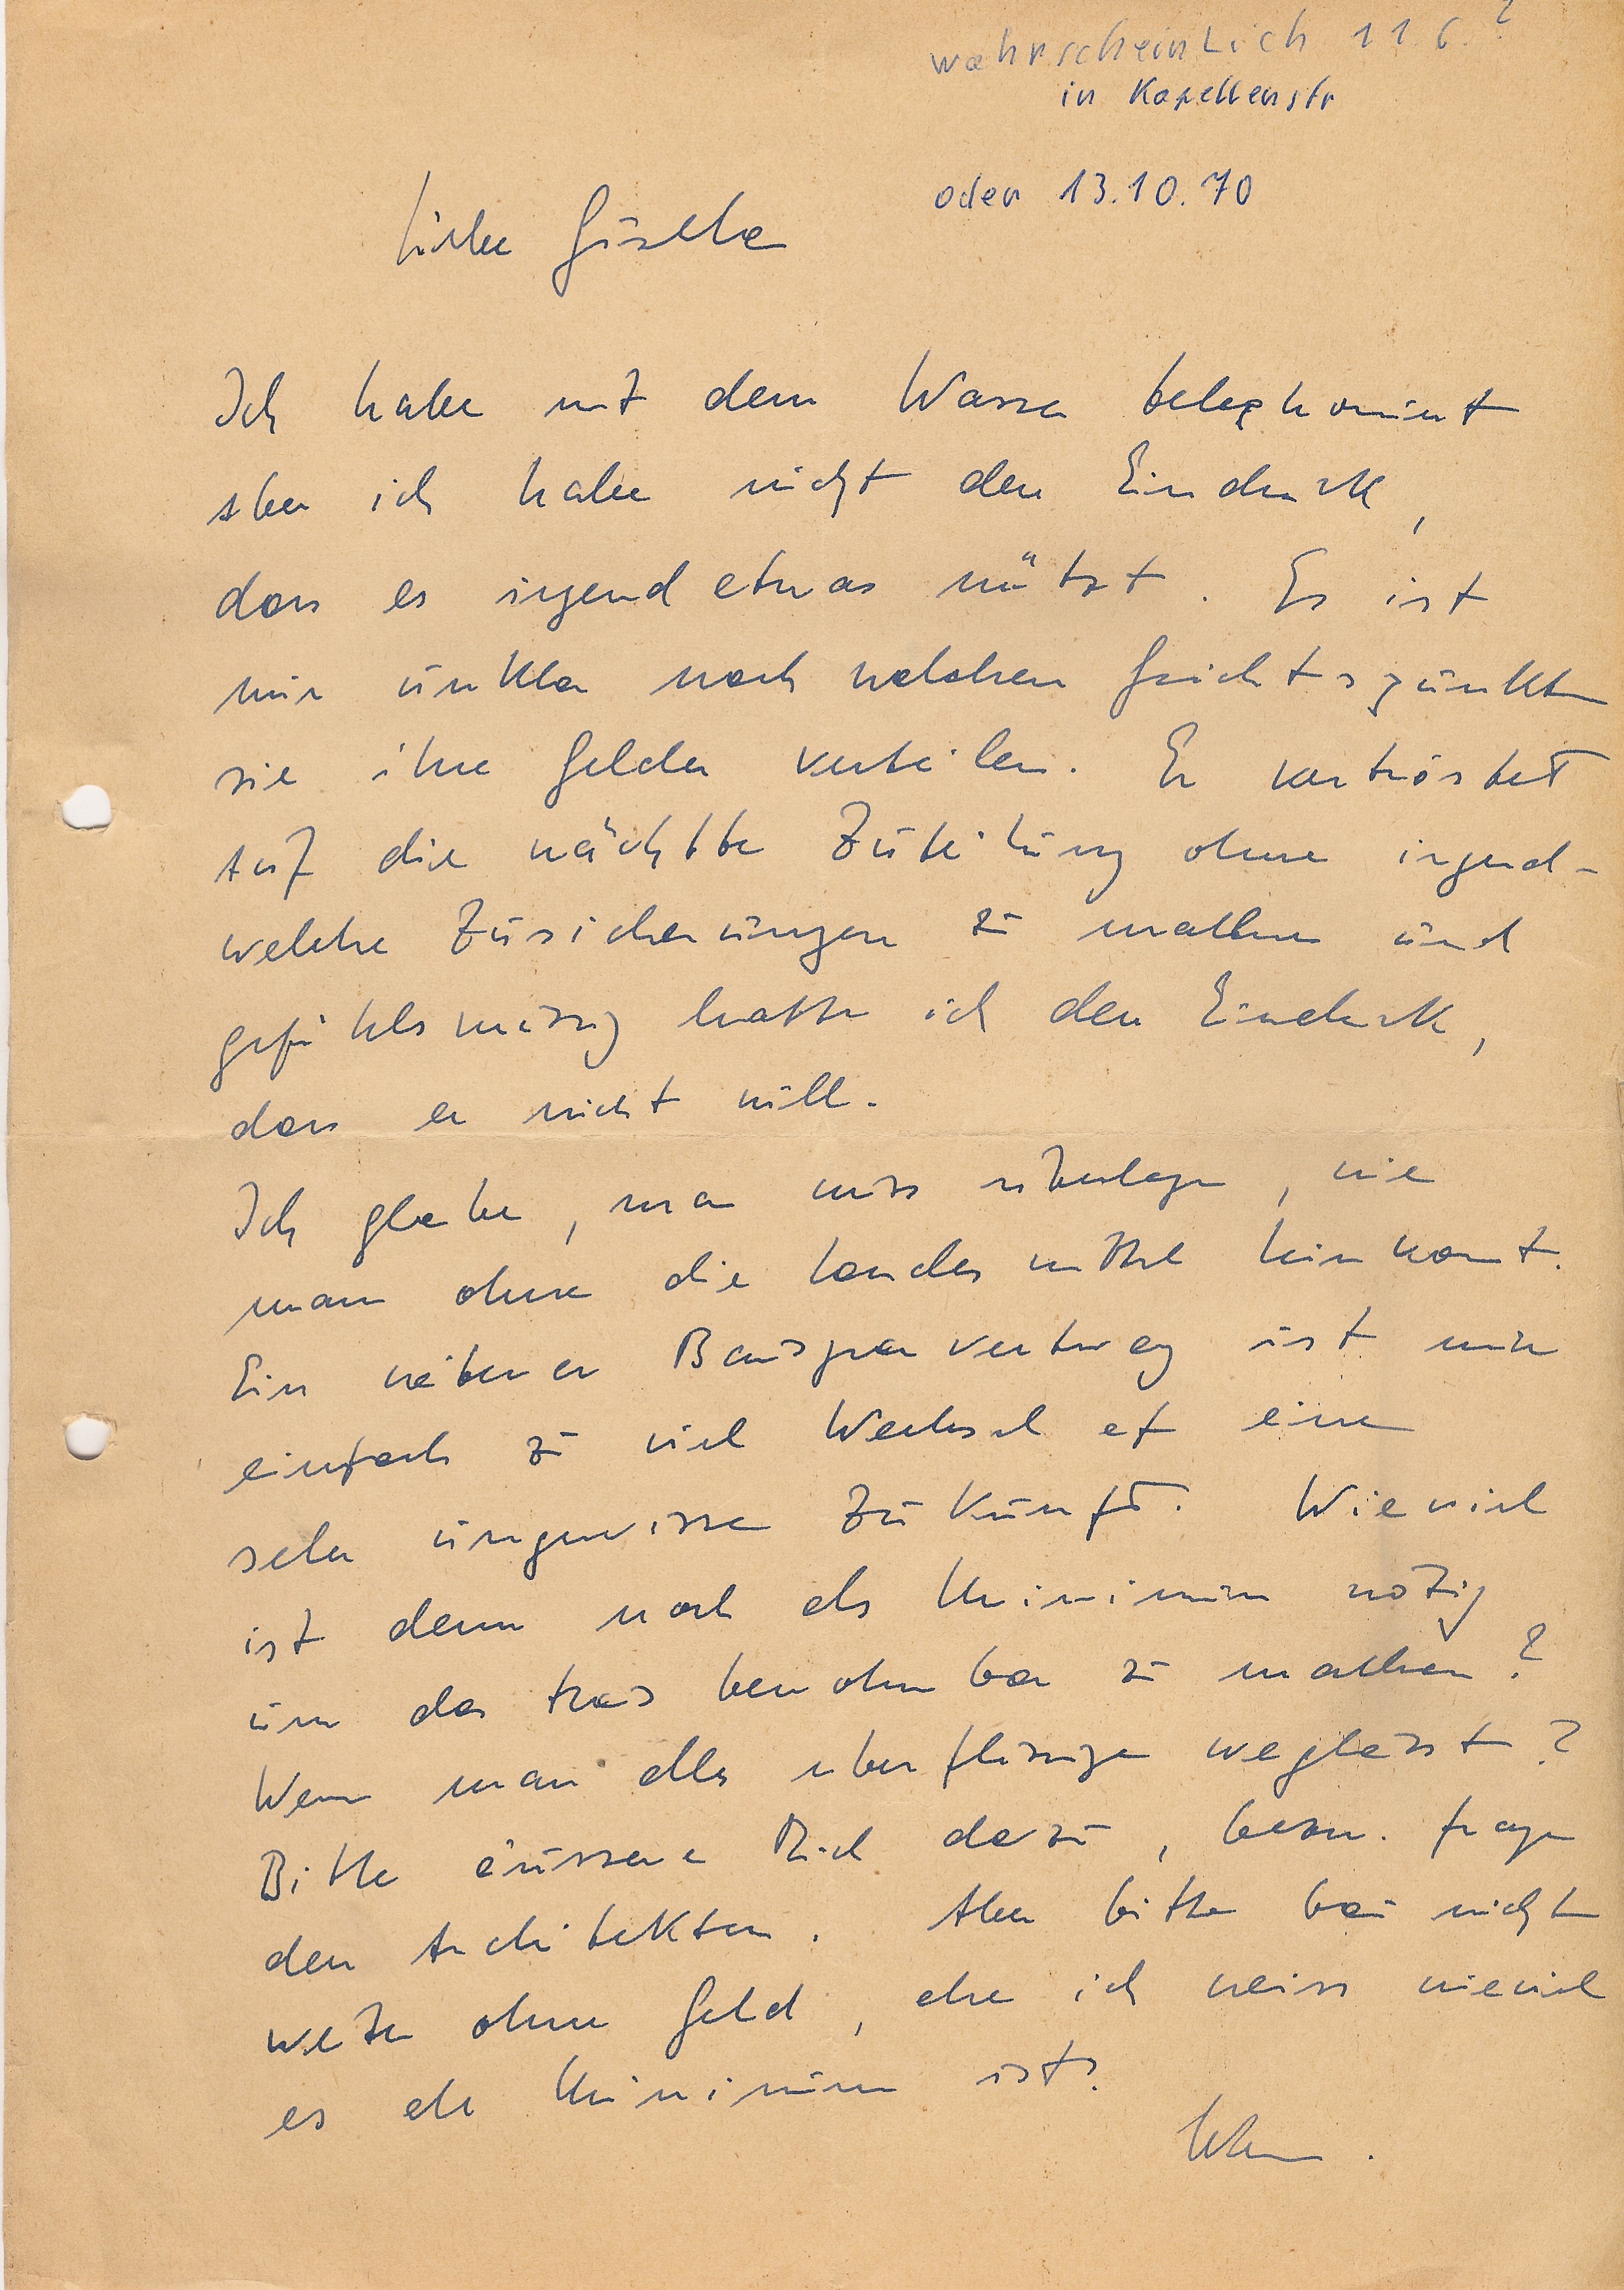 wahrscheinlich 11.6.?
in Kapellenstr
oder 13.10.70
Liebe Gisela
Ich habe mit dem Wasser telephoniert
aber ich habe nicht den Eindruck,
dass es irgend etwas nützt. Es ist
mir unklar nach welchen Gesichtspunkten
sie ihre Gelder verteilen. Er vertröstet
auf die nächste Zuteilung ohne irgend-
welche Zusicherungen zu machen und
gefühlsmässig hatte ich den Eindruck,
dass er nicht will.
Ich glaube, man muss überlegen, wie
man ohne die Landesmittel hinkommt.
Ein weiterer Bausparvertrag ist mir
einfach zu viel Wechsel auf eine
sehr ungewisse Zukunft. Wieviel
ist denn noch als Minimum nötig
um das Haus bewohnbar zu machen?
Wenn man alles überflüssige weglässt?
Bitte äussere Dich dazu, bezw. frage
den Architekten. Aber bitte bau nicht
weiter ohne Geld, ehe ich weiss wieviel
es als Minimum ist.